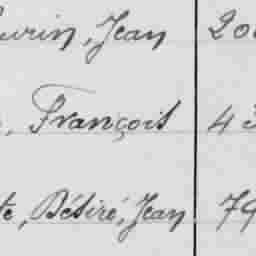 urin, Jean 20
, François 43
te, Désiré, Jean 79